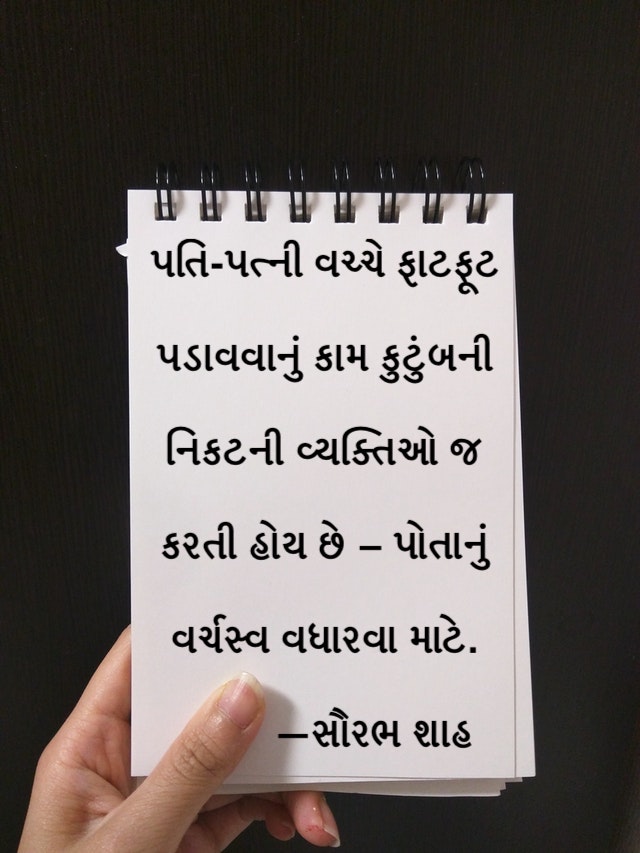 પતિ-પત્ની વચ્ચે ફાટફૂટ
પડાવવાનું કામ કુટુંબની
નિકટની વ્યક્તિઓ જ
કરતી હોય છે – પોતાનું
વર્ચસ્વ વધારવા માટે.
—સૌરભ શાહ